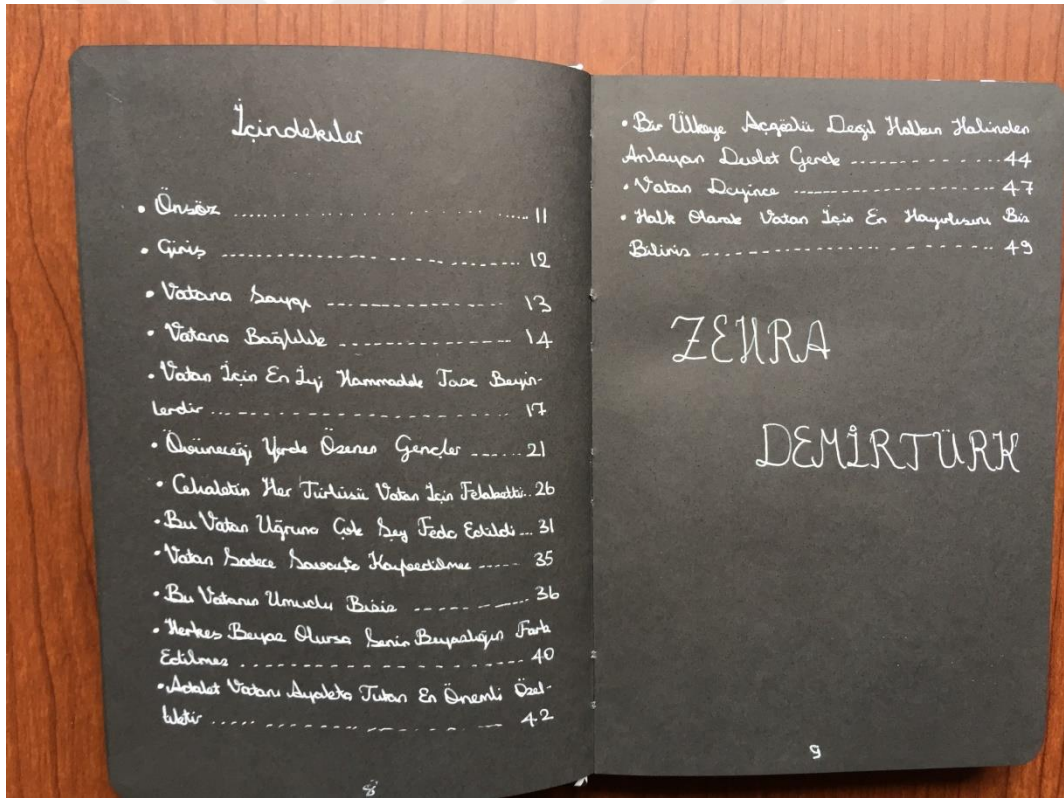 İçindekiler
• Önsöz .................................. 11
• Giriş ---------------------- 12
• Vatana Saygı ------------------ 13
• Vatana Bağlılık ----------------- 14
• Vatan İçin En İyi Hammadde Taze Beyin-
lerdir ---------------------- 17
• Övüneceği Yerde Özenen Gençler ...... 21
• Cehaletin Her Türlüsü Vatan İçin Felakettir.. 26
• Bu Vatan Uğruna Çok Şey Feda Edildi ... 31
• Vatan Sadece Savaşta Kaybedilmez ----- 35
• Bu Vatanın Umudu Biziz ----------- 36
• Herkes Beyaz Olursa Senin Beyazlığın Fark
Edilmez -------------------- 40
• Adalet Vatanı Ayakta Tutan En Önemli Özel-
liktir .................... 42
8
• Bir Ülkeye Açgözlü Değil Halkın Halinden
Anlayan Devlet Gerek --------------- 44
• Vatan Deyince -------------------- 47
• Halk Olarak Vatan İçin En Hayırlısını Biz
Biliriz ---------------------- 49
ZEHRA
DEMİRTÜRK
9